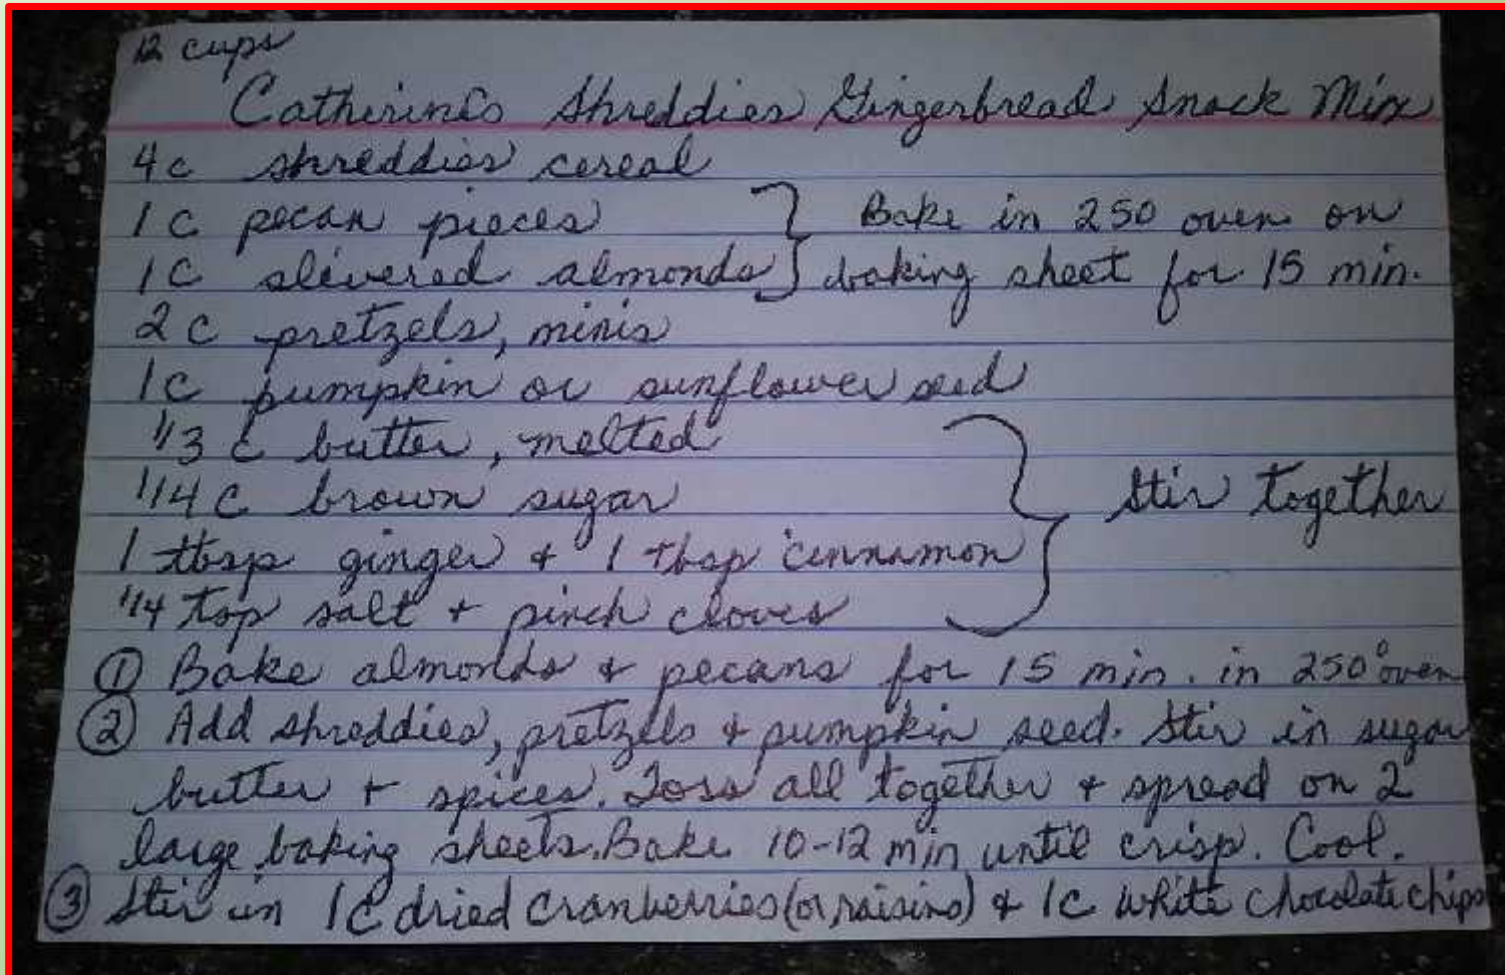 12 cups
Catherine's Shreddies Gingerbread Snack Mix
4c shreddies cereal
1c pecan pieces } Bake in 250 oven on
1c slivered almonds } baking sheet for 15 min.
2c pretzels, minis
1c pumpkin or sunflower seed
1/3 c butter, melted
1/4 c brown sugar } Stir together
1 tbsp ginger & 1 tbsp cinnamon
1/4 tsp salt + pinch cloves
① Bake almonds & pecans for 15 min. in 250° oven
② Add shreddies, pretzels & pumpkin seed. Stir in sugar
butter + spices. Toss all together & spread on 2
large baking sheets. Bake 10-12 min until crisp. Cool.
③ Stir in 1c dried cranberries (or raisins) & 1c white chocolate chips